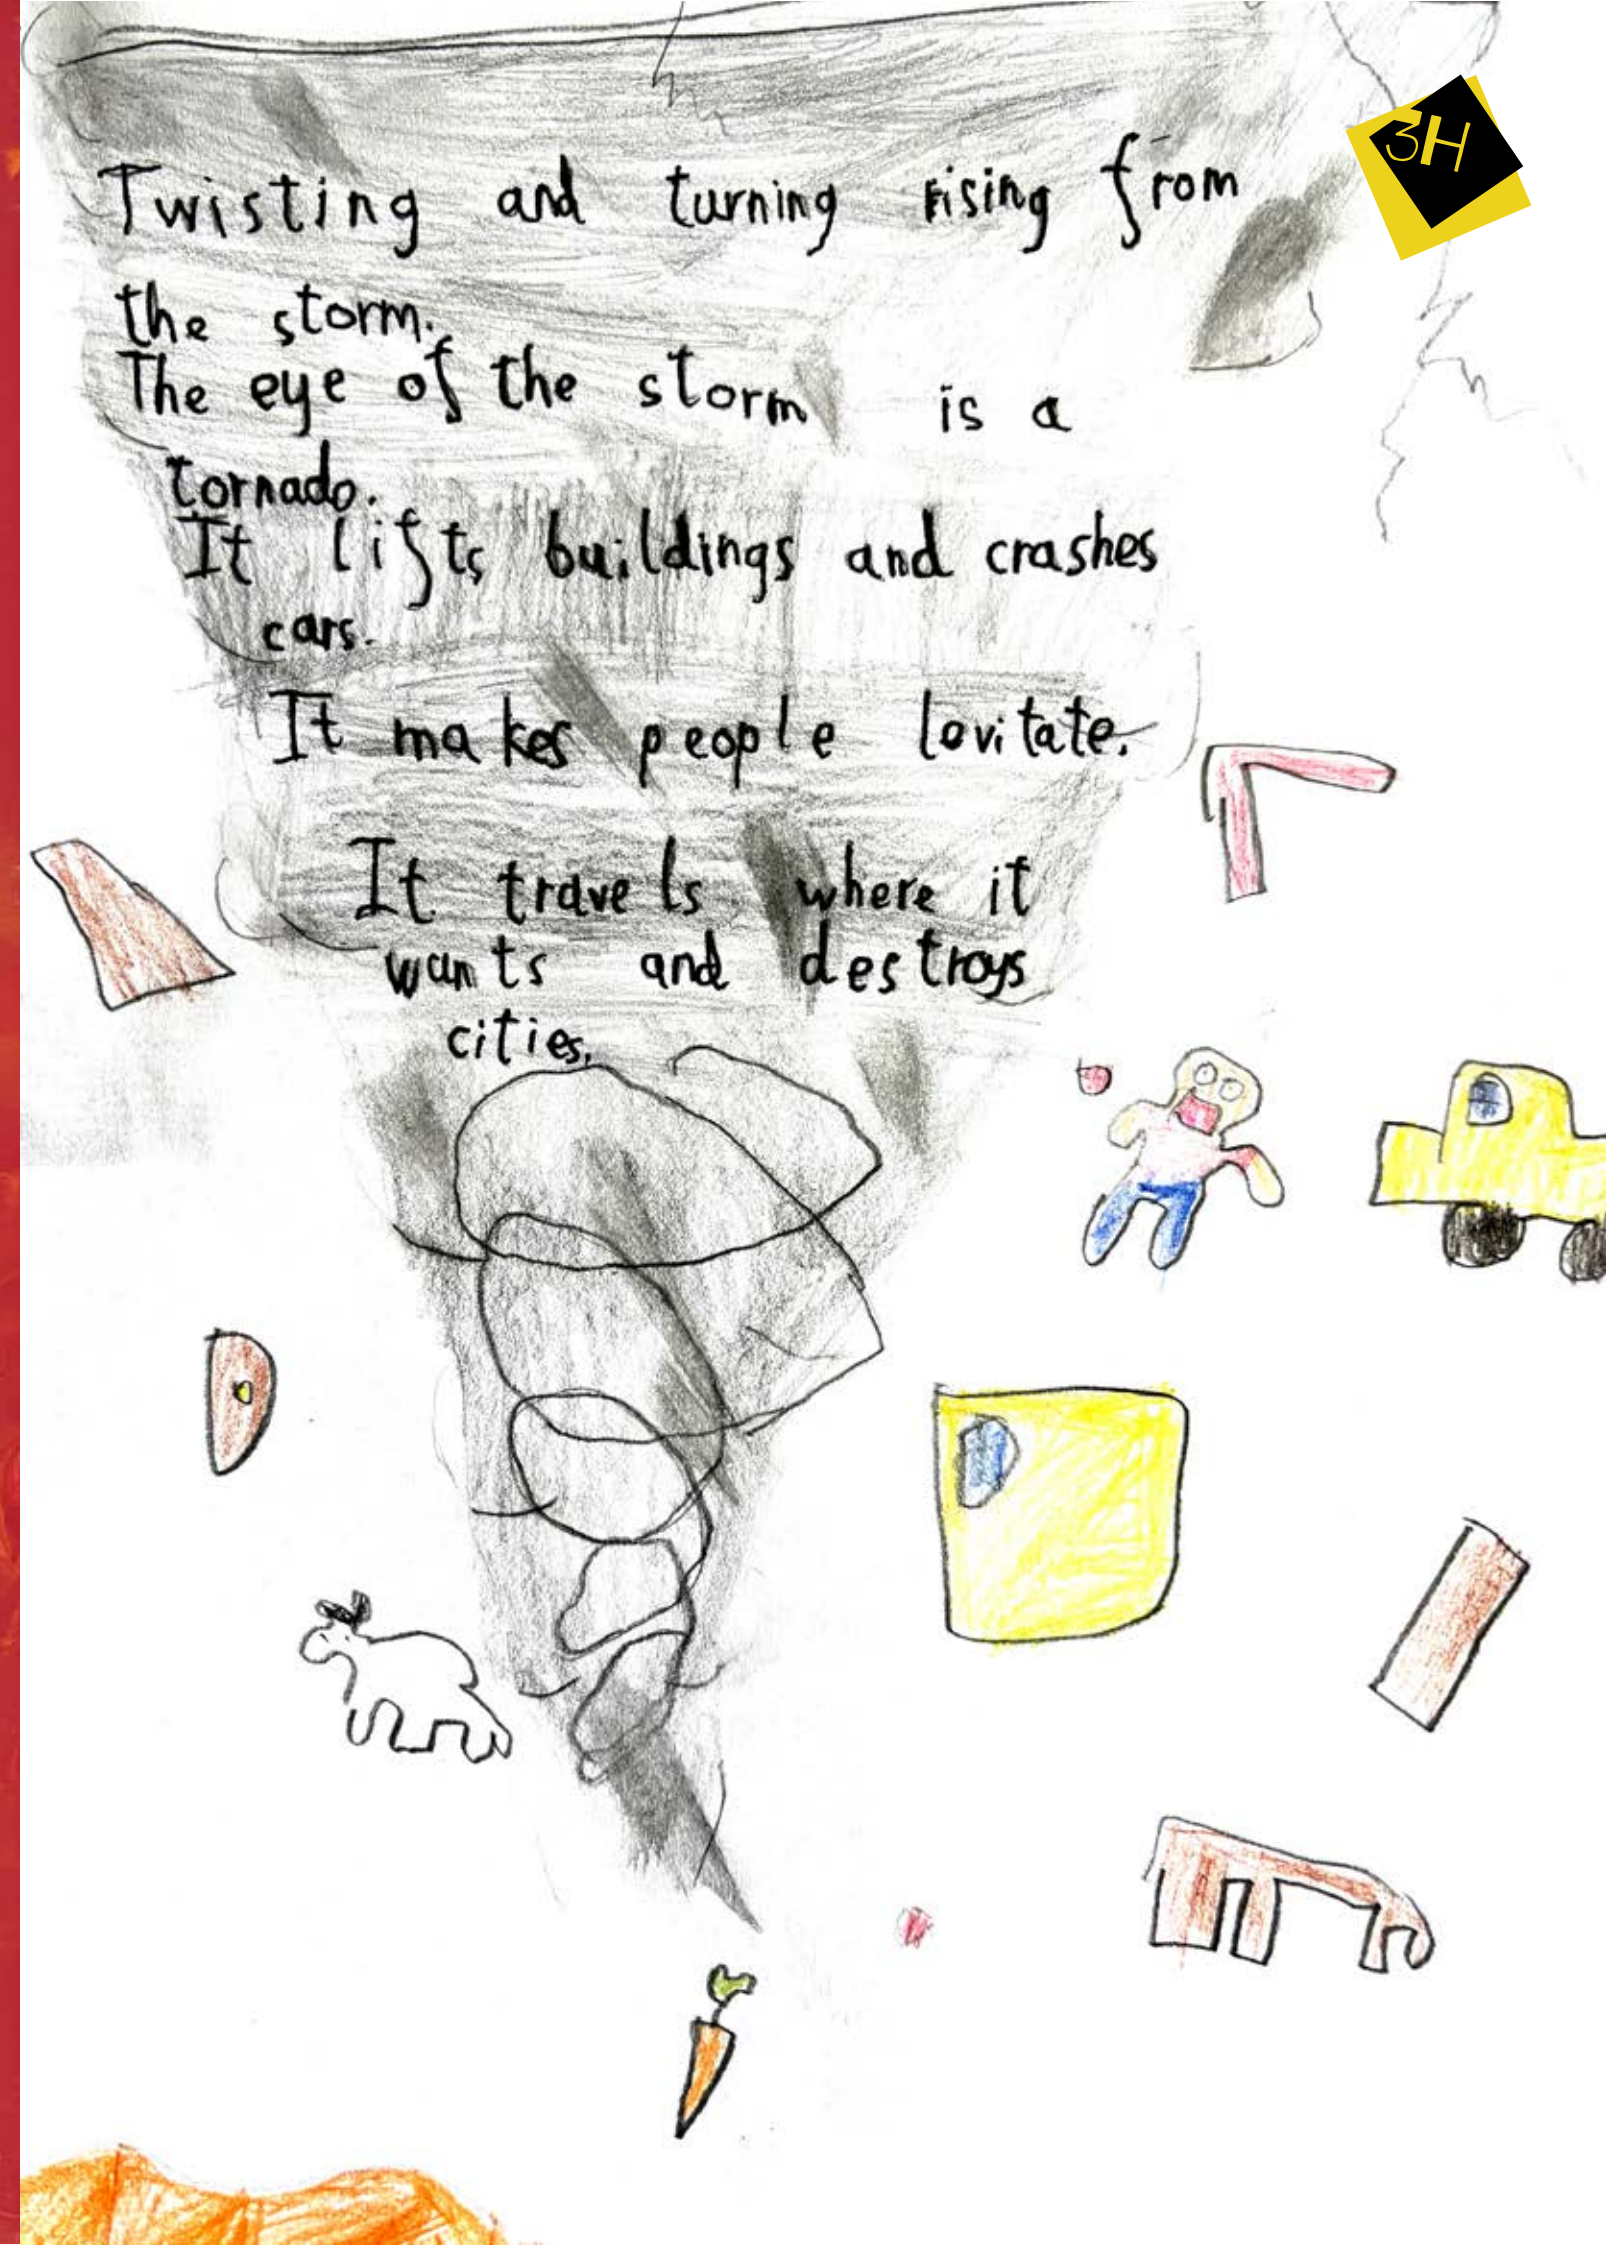 3H
Twisting and turning rising from
the storm.
The eye of the storm is a
tornado.
It lifts buildings and crashes
cars.
It makes people levitate.
It travels where it
wants and destroys
cities.